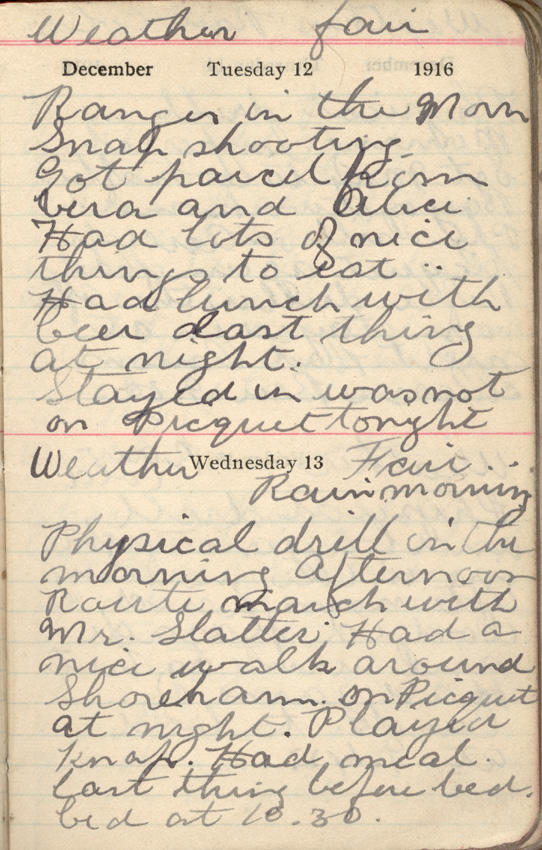 Weather fair
December Tuesday 12 1916
Ranges in the Morn
Snap shooting.
Got parcel from
Vera and Alice
Had lots of nice
things to eat..
Had lunch with
beer last thing
at night.
Stayed in was not
on Picquet tonight
Weather Wednesday 13 Fair..
Rain morning
Physical drill in the
morning Afternoon
Route march with
Mr. Slatter Had a
nice walk around
Shoreham. on Picquet
at night. Played
Knap. Had meal.
last thing before bed.
bed at 10.30.